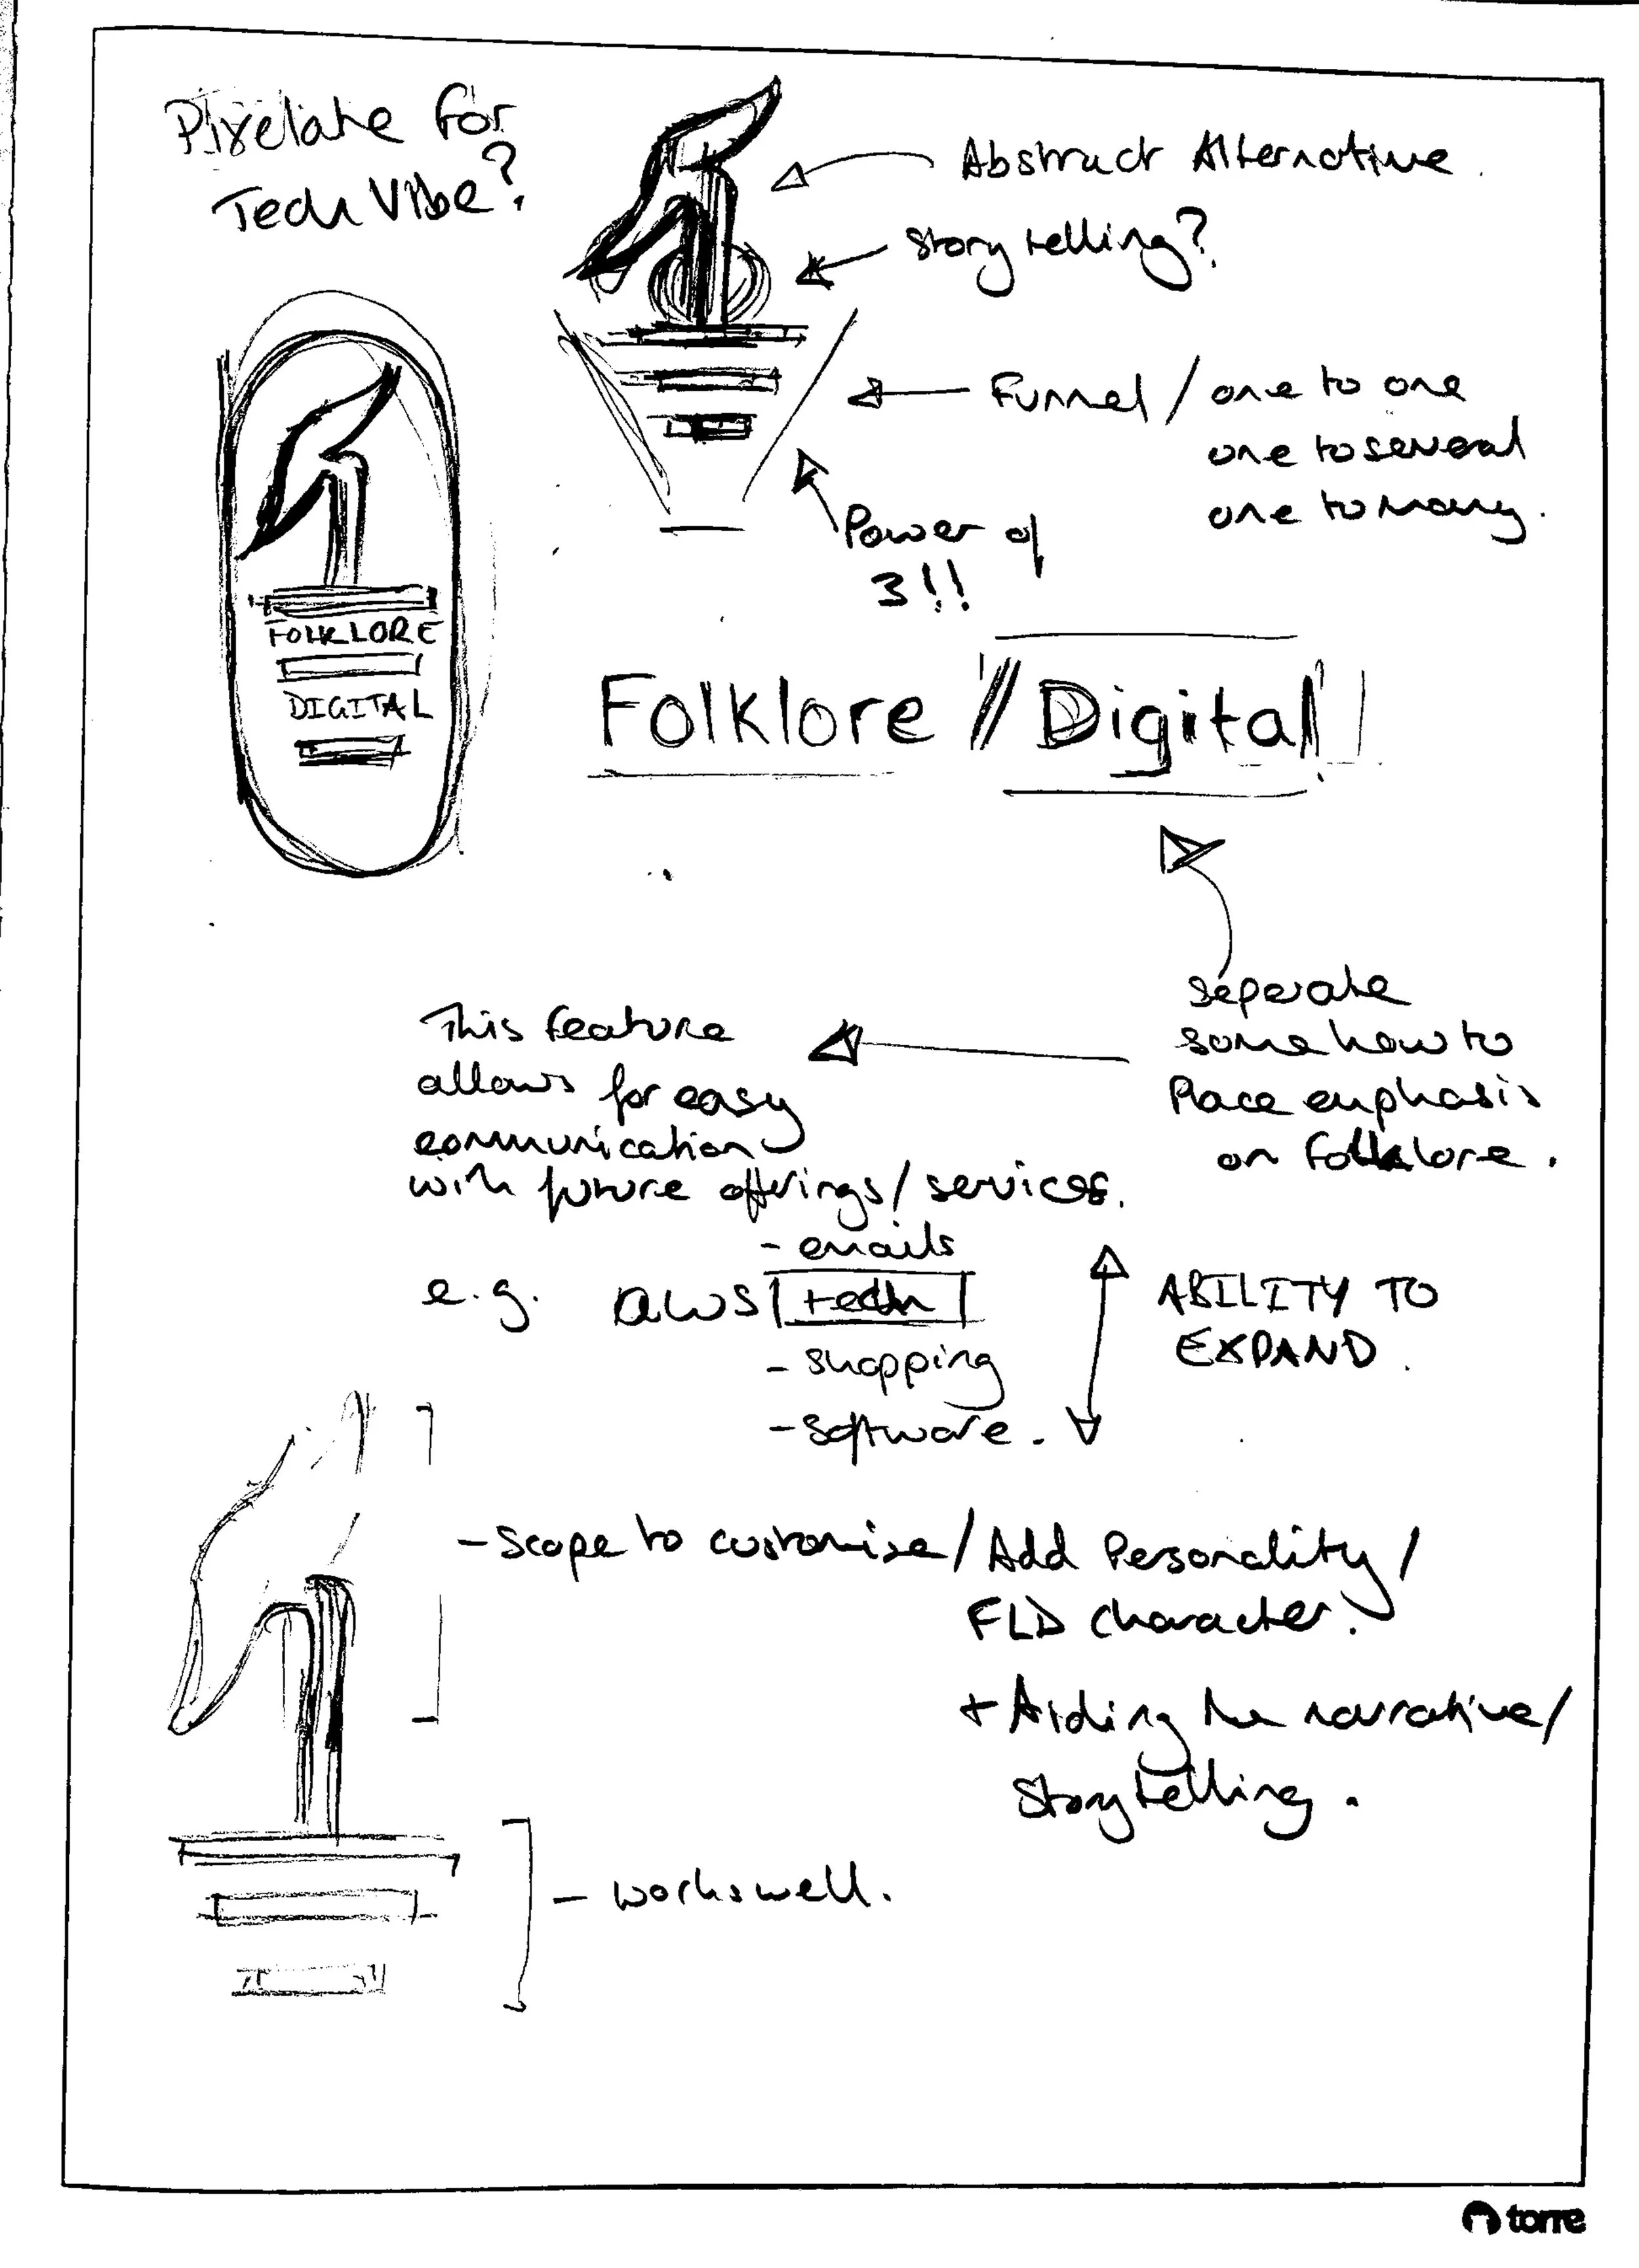 Pixelate for
Tech Vibe?
Abstract Alternative.
Storytelling?
Funnel / one to one
one to several
one to many.
Power of
3!!
FOLKLORE
DIGITAL
Folklore // Digital
Seperate
somehow to
Place emphasis
on Folklore.
This feature
allows for easy
communication
with future offerings/services.
- emails
e.g. aws | tech |
- shopping
- software.
ABILITY TO
EXPAND.
- Scope to customise / Add Personality /
FLD character.
+ Aiding the narrative/
Storytelling.
- works well.
torre